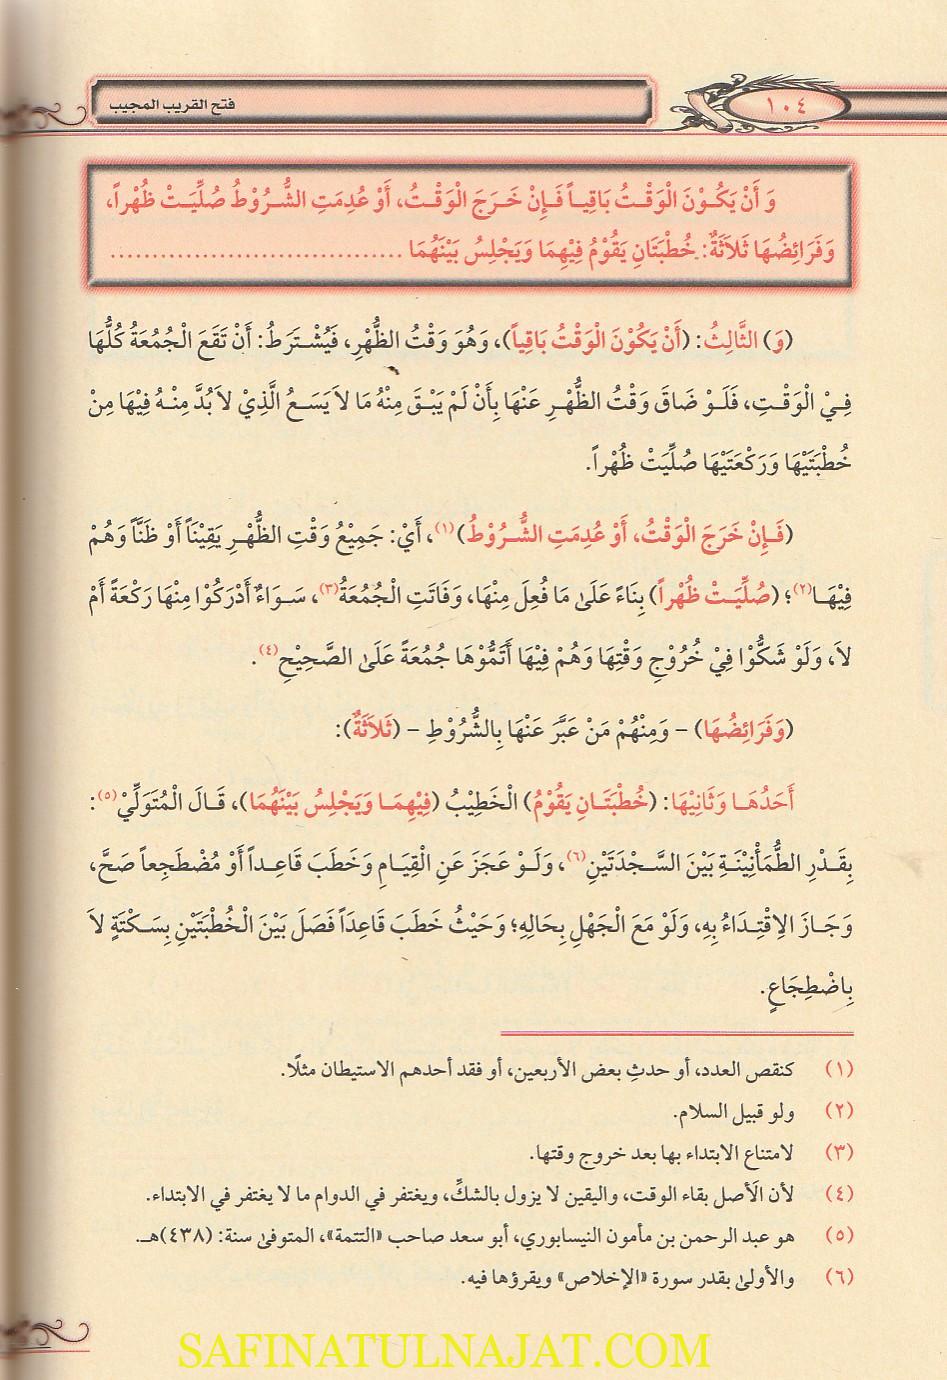 ١٠٤
فتح القريب المجيب
وَ أَنْ يَكُوْنَ الْوَقْتُ بَاقِياً فَإِنْ خَرَجَ الْوَقْتُ، أَوْ عُدِمَتِ الشُّرُوْطُ صُلِّيَتْ ظُهْراً،
وَفَرَائِضُهَا ثَلَاثَةٌ: خُطْبَتَانِ يَقُوْمُ فِيْهِمَا وَيَجْلِسُ بَيْنَهُمَا ..................................
(وَ) الثَّالِثُ: (أَنْ يَكُوْنَ الْوَقْتُ بَاقِياً)، وَهُوَ وَقْتُ الظُّهْرِ، فَيُشْتَرَطُ: أَنْ تَقَعَ الْجُمُعَةُ كُلُّهَا
فِيْ الْوَقْتِ، فَلَوْ ضَاقَ وَقْتُ الظُّهْرِ عَنْهَا بِأَنْ لَمْ يَبْقَ مِنْهُ مَا لاَ يَسَعُ الَّذِيْ لاَ بُدَّ مِنْهُ فِيْهَا مِنْ
خُطْبَتَيْهَا وَرَكْعَتَيْهَا صُلِّيَتْ ظُهْراً.
(فَإِنْ خَرَجَ الْوَقْتُ، أَوْ عُدِمَتِ الشُّرُوْطُ)(١)، أَيْ: جَمِيْعُ وَقْتِ الظُّهْرِ يَقِيْنَاً أَوْ ظَنَّاً وَهُمْ
فِيْهَا(٢)؛ (صُلِّيَتْ ظُهْراً) بِنَاءً عَلَىٰ مَا فُعِلَ مِنْهَا، وَفَاتَتِ الْجُمُعَةُ(٣)، سَوَاءٌ أَدْرَكُوْا مِنْهَا رَكْعَةً أَمْ
لاَ، وَلَوْ شَكُّوْا فِيْ خُرُوْجِ وَقْتِهَا وَهُمْ فِيْهَا أَتَمُّوْهَا جُمُعَةً عَلَىٰ الصَّحِيْحِ(٤).
(وَفَرَائِضُهَا) - وَمِنْهُمْ مَنْ عَبَّرَ عَنْهَا بِالشُّرُوْطِ - (ثَلَاثَةٌ):
أَحَدُهَا وَثَانِيْهَا: (خُطْبَتَانِ يَقُوْمُ) الْخَطِيْبُ (فِيْهِمَا وَيَجْلِسُ بَيْنَهُمَا)، قَالَ الْمُتَوَلِّيْ(٥):
بِقَدْرِ الطُّمَأْنِيْنَةِ بَيْنَ السَّجْدَتَيْنِ(٦)، وَلَوْ عَجَزَ عَنِ الْقِيَامِ وَخَطَبَ قَاعِداً أَوْ مُضْطَجِعاً صَحَّ،
وَجَازَ الاِقْتِدَاءُ بِهِ، وَلَوْ مَعَ الْجَهْلِ بِحَالِهِ؛ وَحَيْثُ خَطَبَ قَاعِدَاً فَصَلَ بَيْنَ الْخُطْبَتَيْنِ بِسَكْتَةٍ لاَ
بِاضْطِجَاعٍ.
(١) كنقص العدد، أو حدثِ بعض الأربعين، أو فقد أحدهم الاستيطان مثلًا.
(٢) ولو قبيل السلام.
(٣) لامتناع الابتداء بها بعد خروج وقتها.
(٤) لأن الأصل بقاء الوقت، واليقين لا يزول بالشكِّ، ويغتفر في الدوام ما لا يغتفر في الابتداء.
(٥) هو عبد الرحمن بن مأمون النيسابوري، أبو سعد صاحب «التتمة»، المتوفىٰ سنة: (٤٣٨)هـ.
(٦) والأولىٰ بقدر سورة «الإخلاص» ويقرؤها فيه.
SAFINATULNAJAT.COM